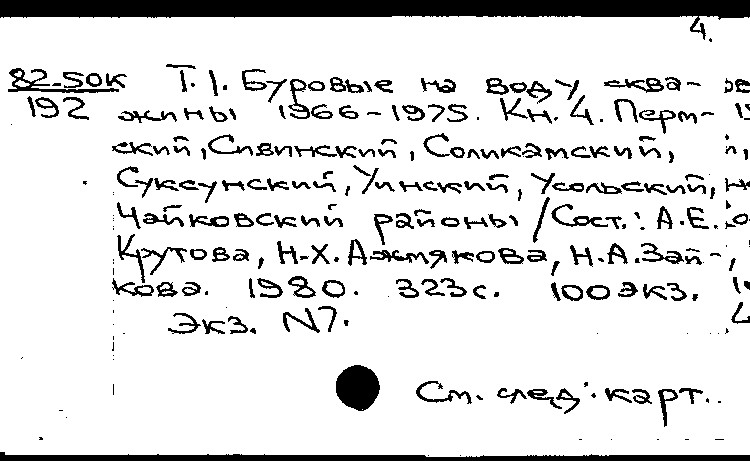 4.
82-50К Т.1. Буровые на воду сква-
192 жины 1966-1975. Кн. 4. Перм-
ский, Сивинский, Соликамский,
Суксунский, Уинский, Усольский,
Чайковский районы / Сост.: А.Е.
Крутова, Н.Х. Ажмякова, Н.А. Зай-
кова. 1980. 323с. 100экз.
Экз. N7.
См. след. карт..